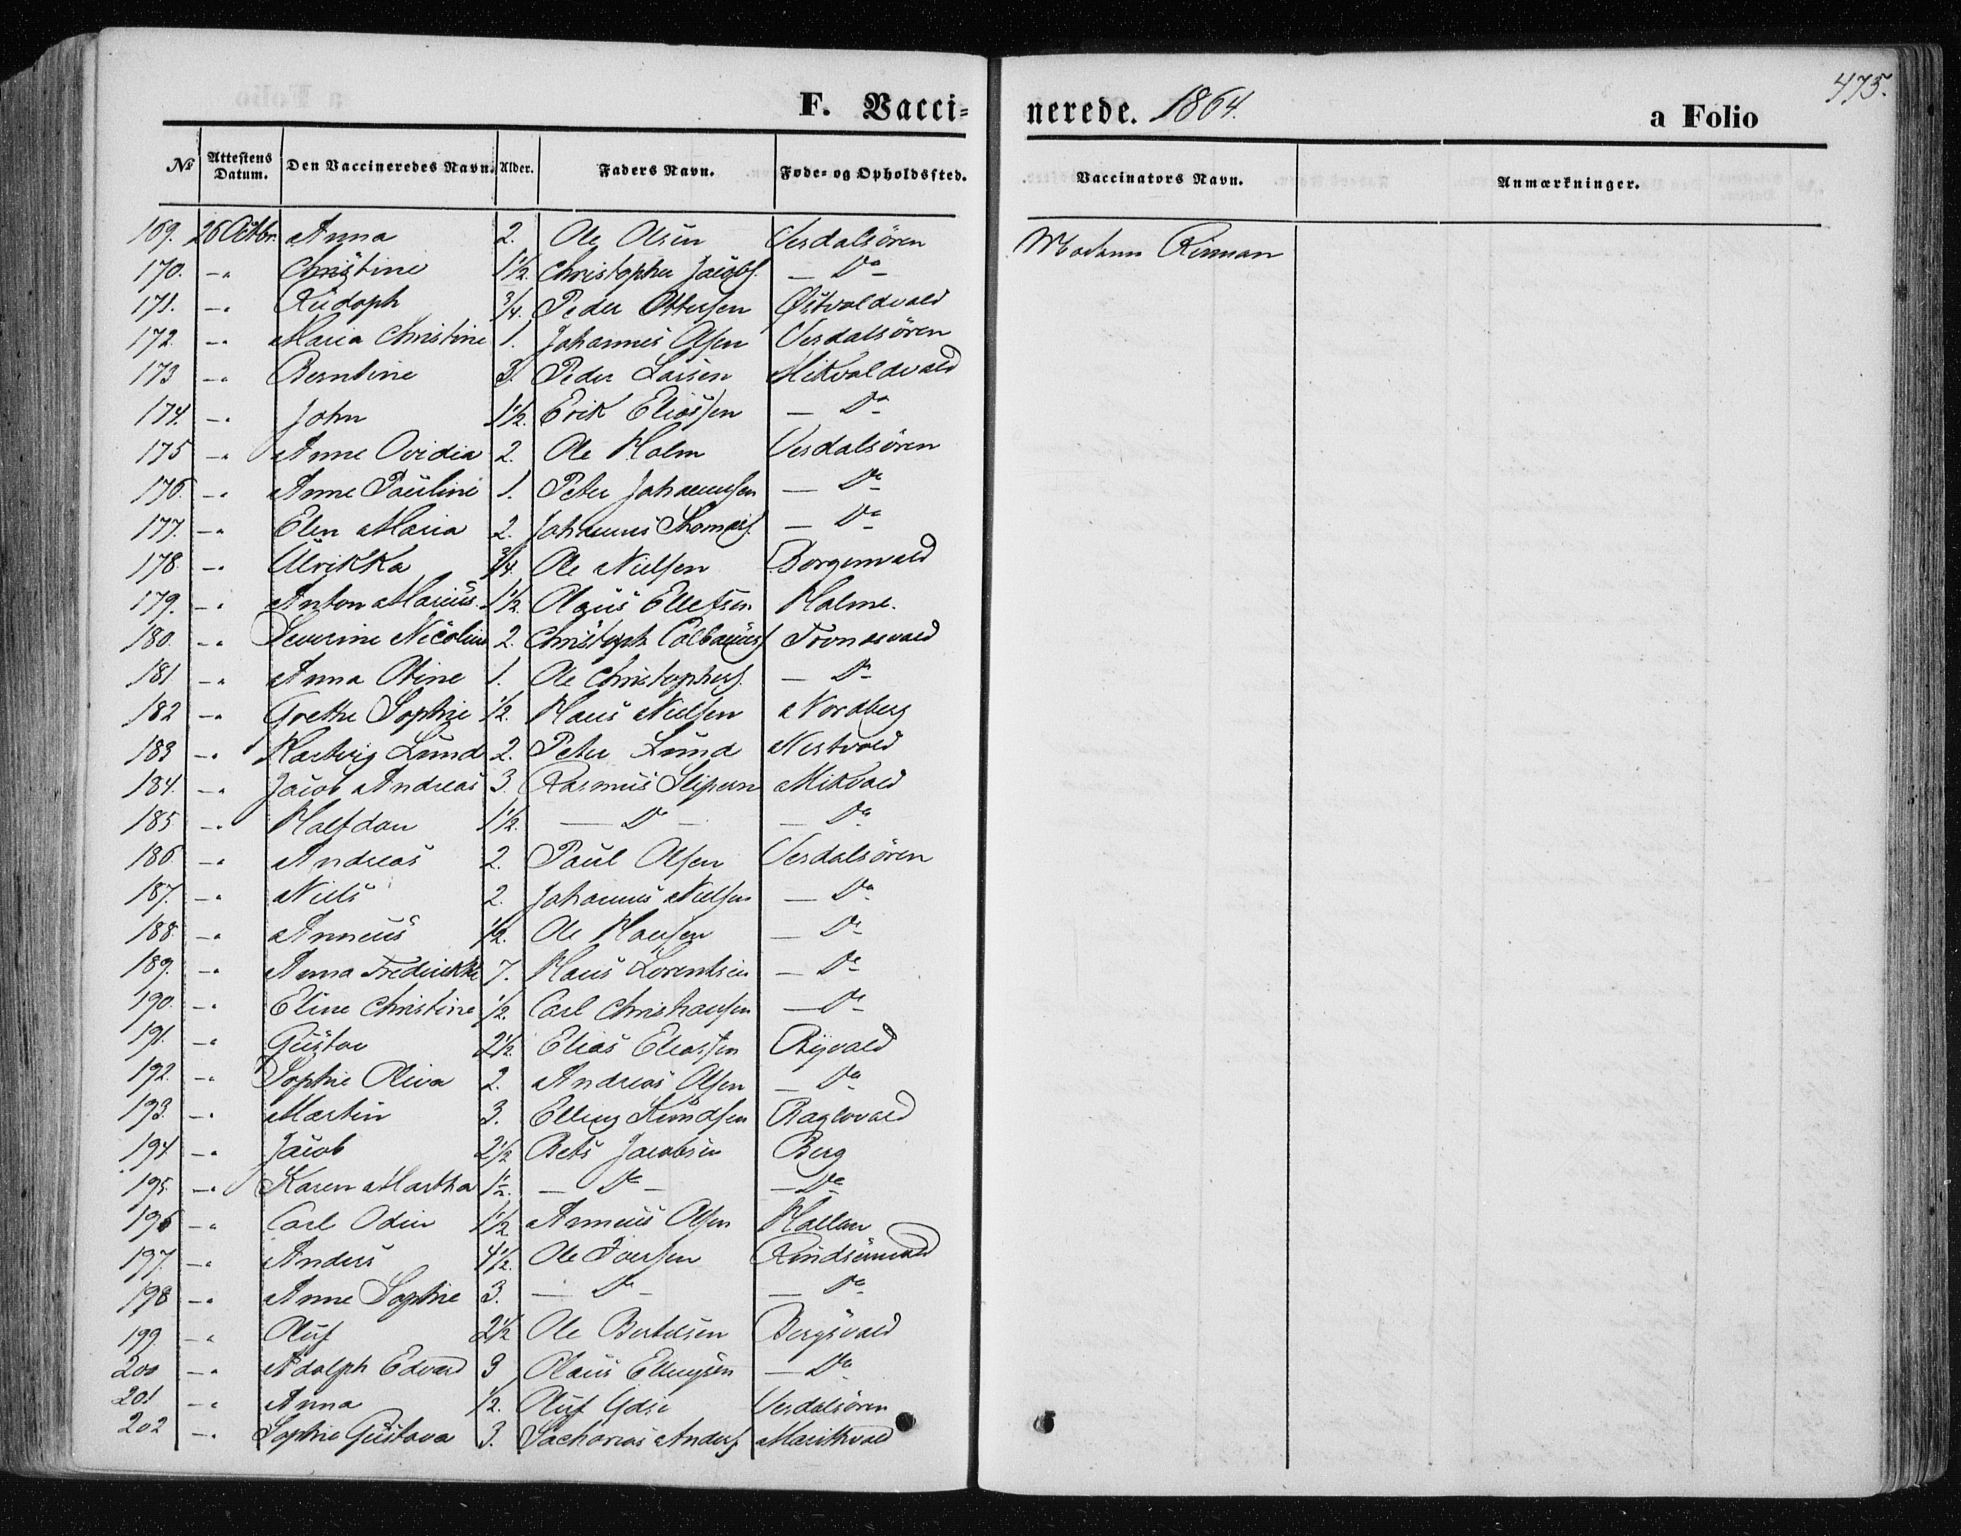 475.
F. Vacci=
nerede. 1864.
a Folio
№ Attestens Datum. Den Vaccineredes Navn. Alder. Faders Navn. Føde= og Opholdssted. Vaccinators Navn. Anmærkninger.
169. 26 Octbr. Anna 2. Ole Olsen Verdalsören Madam Rinnan
170. -" Christine 1½. Christopher Jacobs. — Do —
171. -" Rudoph ¾. Peder Ottersen Østvoldvald
172 -" Maria Christine 1. Johannes Olsen Verdalsören
173 -" Berntine 3. Peder Larsen Mikvoldvald
174. -" John 1½. Erik Eliassen — Do
175 -" Anne Ovidia 2. Ole Holm Verdalsören
176. -" Anne Pauline 1. Peter Johannesen — Do
177. -" Elen Maria 2. Johannes Thomas. — Do
178. -" Ulrikka ¾. Ole Nielsen Borgenvald
179. -" Anton Marius. 1½ Olaus Ellefsen Halme.
180. -" Severine Nicoline 2. Christoph Colbanus. Tronesvald
181 -" Anna Oline 1. Ole Christophers. — Do
182 -" Grethe Sophie ½. Hans Nielsen Nordberg
183 -" Hartvig Lund 2. Peter Lund Nestvold
184. -" Jacob Andreas 3. Rasmus Slipern Mikvald
185 -" Halfdan 1½. — Do — — Do
186. -" Andreas 2. Paul Olsen Verdalsören
187. -" Niels 2. Johannes Nielsen — Do
188. -" Anneus ½. Ole Hansen — Do
189. -" Anna Fredrikke 7. Hans Lorentsen — Do
190. -" Eline Christine ½. Carl Christiansen — Do
191. -" Gustav 2½. Elias Eliassen Byvald
192. -" Sophie Oliva 2. Andreas Olsen — Do
193. -" Martin 3. Elling Knudsen Baglovald
194 -" Jacob 2½ Bets Jacobsen Berg
195. -" Karen Martha 1½. — Do — — Do
196 -" Carl Odin 1½ Anneus Olsen Hallan
197. -" Anders 4½. Ole Iversen Rindsemvald
198 -" Anne Sophie 3. — Do — — Do
199. -" Oluf 2½ Ole Bertelsen Bergsvald
200 -" Adolph Edvard 3 Olaus Ellingsen — Do
201 -" Anna ½. Oluf Ydse Verdalsören
202 -" Sophie Gustava 3. Sacharias Anders. Marithvold